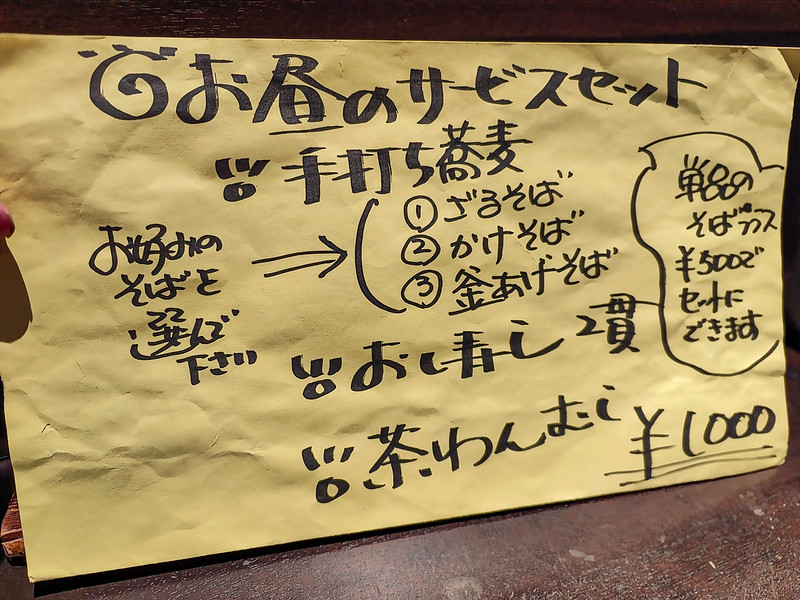 お昼のサービスセット
手打ち蕎麦
①ざるそば
②かけそば
③釜あげそば
お好みの
そばを
選んで
下さい
お寿し 2貫
茶わんむし
¥1000
単品の
そばプラス
¥500で
セットに
できます